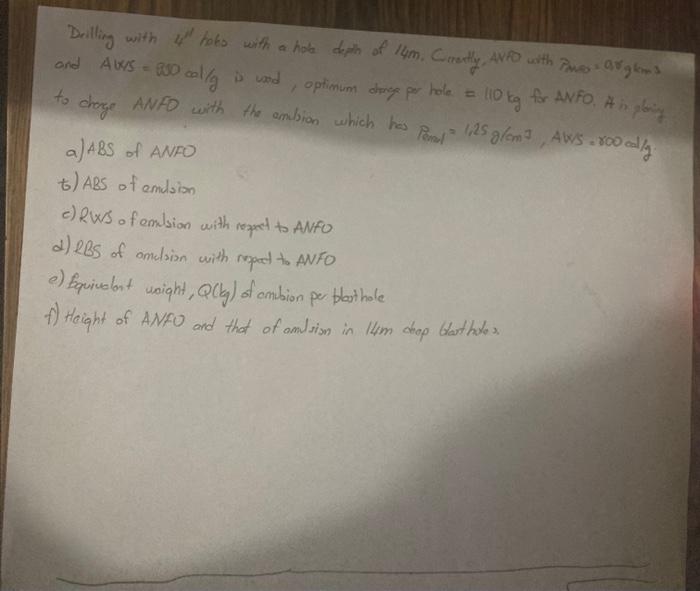 Drilling with 4" holes with a hole depth of 14m. Currently, ANFO with ρANFO = 0,8 g/cm3
and AWS = 890 cal/g is used, optimum charge per hole = 110 kg for ANFO. A is planing
to charge ANFO with the emulsion which has ρemul = 1,25 g/cm3, AWS = 800 cal/g.
a) ABS of ANFO
b) ABS of emulsion
c) RWS of emulsion with respect to ANFO
d) RBS of emulsion with respect to ANFO
e) Equivalent weight, Q(kg) of emulsion per blast hole
f) Height of ANFO and that of emulsion in 14m deep blast holes.